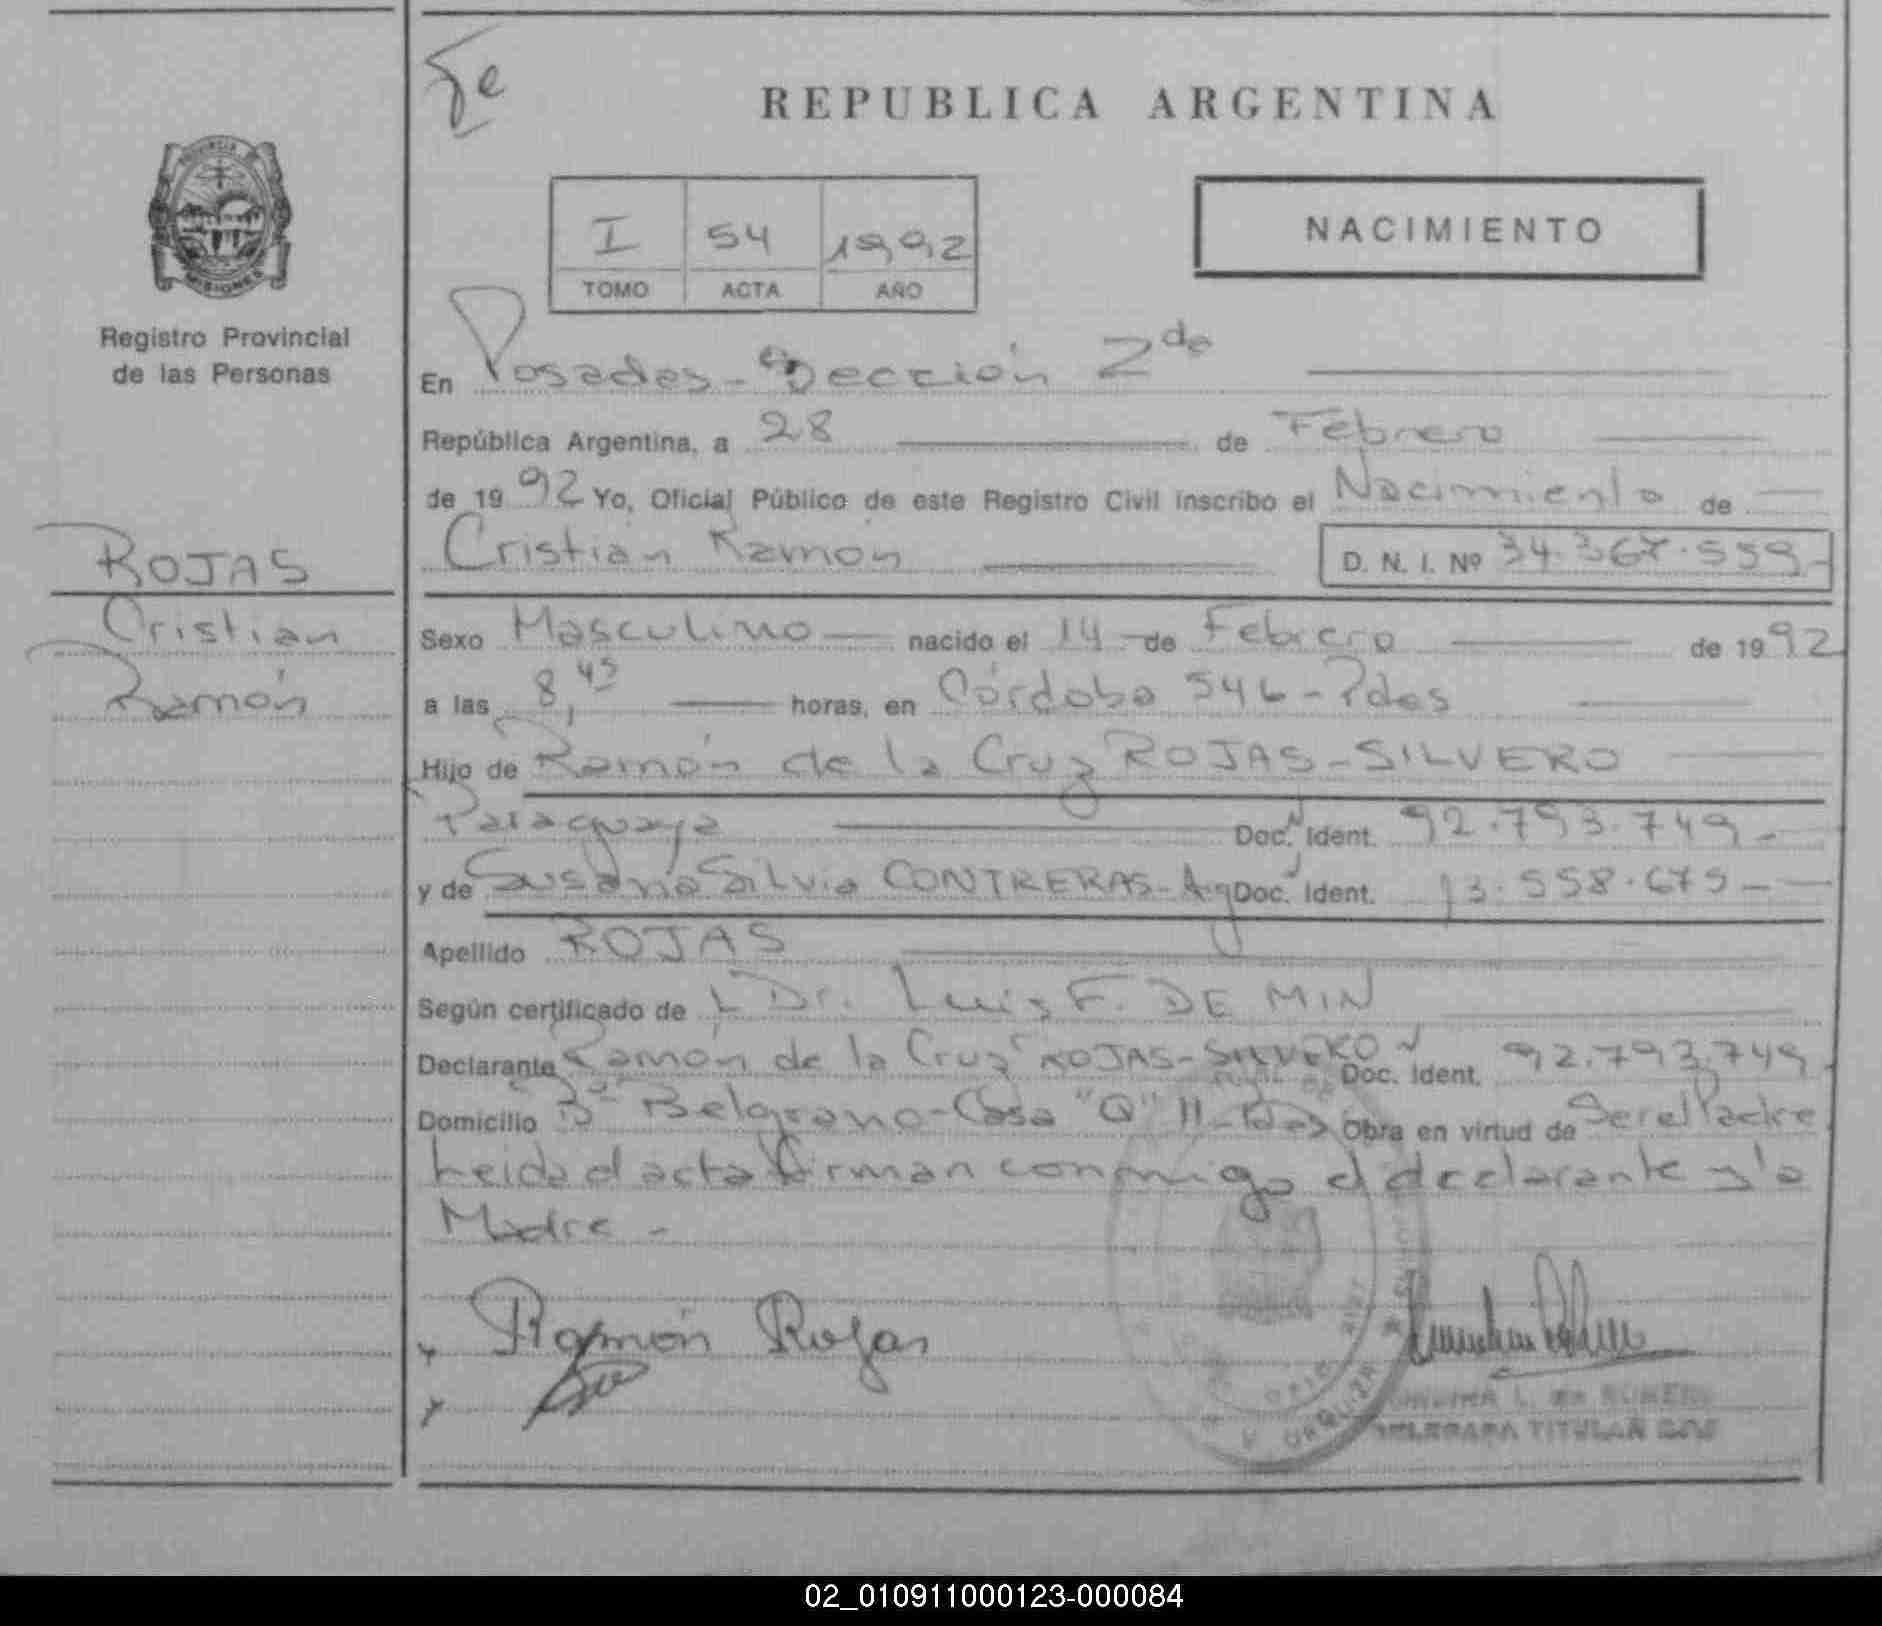 Fe
REPUBLICA ARGENTINA
PROVINCIA DE
MISIONES
Registro Provincial
de las Personas
I 54 1992
TOMO ACTA AÑO
NACIMIENTO
En Posadas - Sección 2da
República Argentina, a 28 de Febrero
de 1992 Yo, Oficial Público de este Registro Civil inscribo el Nacimiento de
Cristian Ramón D. N. I. Nº 34.367.559-
ROJAS
Cristian
Ramón
Sexo Masculino nacido el 14 de Febrero de 1992
a las 8,45 horas, en Córdoba 546 - Pdas
Hijo de Ramón de la Cruz ROJAS - SILVERO
Paraguaya Doc. Ident. 92.793.749-
y de Susana Silvia CONTRERAS - Arg Doc. Ident. 13.558.675-
Apellido ROJAS
Según certificado de Dr. Luis F. DE MIN
Declarante Ramón de la Cruz ROJAS - SILVERO Doc. Ident. 92.793.749
Domicilio Bº Belgrano - Casa "Q" 11 - Pdas Obra en virtud de Ser el Padre
Leida el acta firman conmigo el declarante y la
Madre -
Ramón Rojas
URQUIZA
TITULAR
02_010911000123-000084